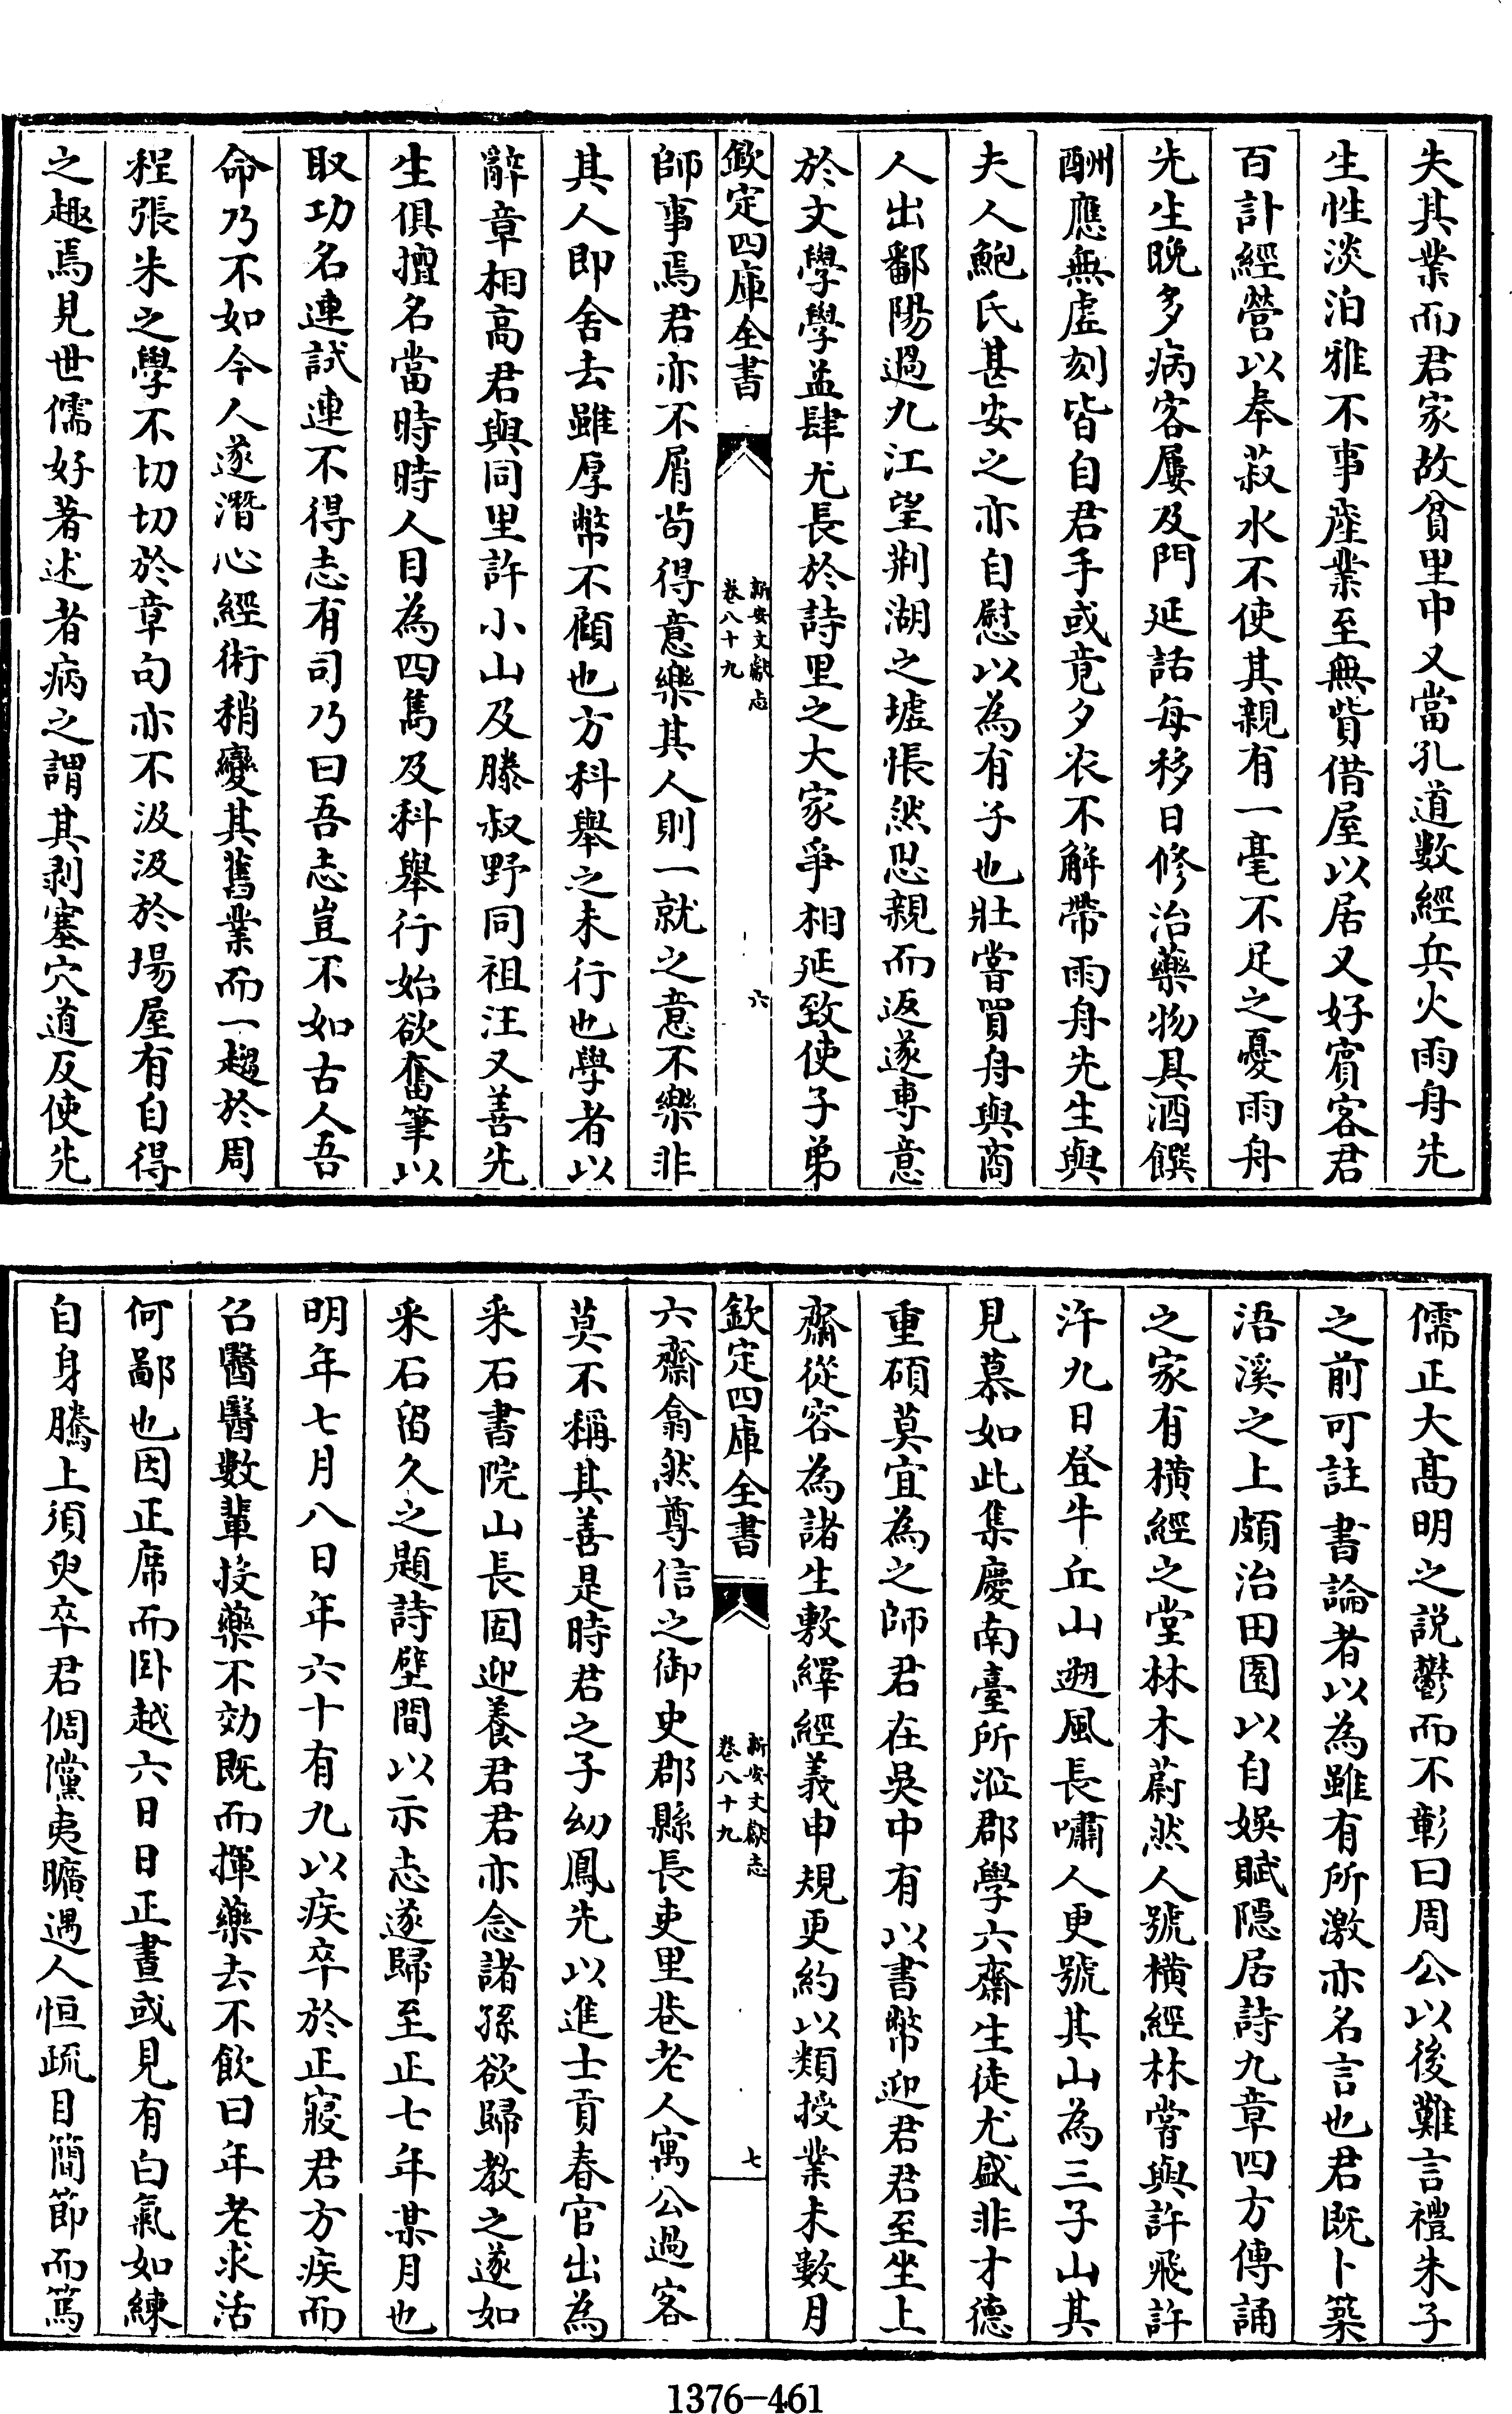 失其業而君家故貧里中又當孔道數經兵火雨舟先
生性淡泊雅不事產業至無貲借屋以居又好賔客君
百計經營以奉菽水不使其親有一毫不足之憂雨舟
先生晩多病客屢及門延話每移日修治藥物具酒饌
酬應無虛刻皆自君手或竟夕衣不解帶雨舟先生與
夫人鮑氏甚安之亦自慰以為有子也壯嘗買舟與商
人出鄱陽過九江望荆湖之墟悵然思親而返遂專意
於文學學益肆尤長於詩里之大家爭相延致使子弟
欽定四庫全書
新安文獻志
卷八十九
六
師事焉君亦不屑茍得意樂其人則一就之意不樂非
其人即舍去雖厚幣不顧也方科舉之未行也學者以
辭章相高君與同里許小山及滕叔野同祖汪又善先
生俱擅名當時時人目為四雋及科舉行始欲奮筆以
取功名連試連不得志有司乃曰吾志豈不如古人吾
命乃不如今人遂潛心經術稍變其舊業而一趨於周
程張朱之學不切切於章句亦不汲汲於場屋有自得
之趣焉見世儒好著述者病之謂其剥塞穴道反使先
儒正大髙明之説鬱而不彰曰周公以後難言禮朱子
之前可註書論者以為雖有所激亦名言也君既卜築
浯溪之上頗治田園以自娛賦隠居詩九章四方傳誦
之家有横經之堂林木蔚然人號横經林嘗與許飛許
汻九日登牛丘山遡風長嘯人更號其山為三子山其
見慕如此集慶南臺所涖郡學六齋生徒尤盛非才德
重碩莫宜為之師君在吳中有以書幣迎君君至坐上
齋從容為諸生敷繹經義申規更約以類授業未數月
欽定四庫全書
新安文獻志
卷八十九
七
六齋翕然尊信之御史郡縣長吏里巷老人寓公過客
莫不稱其善是時君之子幼鳳先以進士貢春官出為
采石書院山長固迎養君君亦念諸孫欲歸教之遂如
采石留久之題詩壁間以示志遂歸至正七年某月也
明年七月八日年六十有九以疾卒於正寢君方疾而
召醫醫數輩投藥不効既而揮藥去不飲曰年老求活
何鄙也因正席而卧越六日日正晝或見有白氣如練
自身騰上須臾卒君倜儻夷曠遇人恒疏目簡節而篤
1376-461